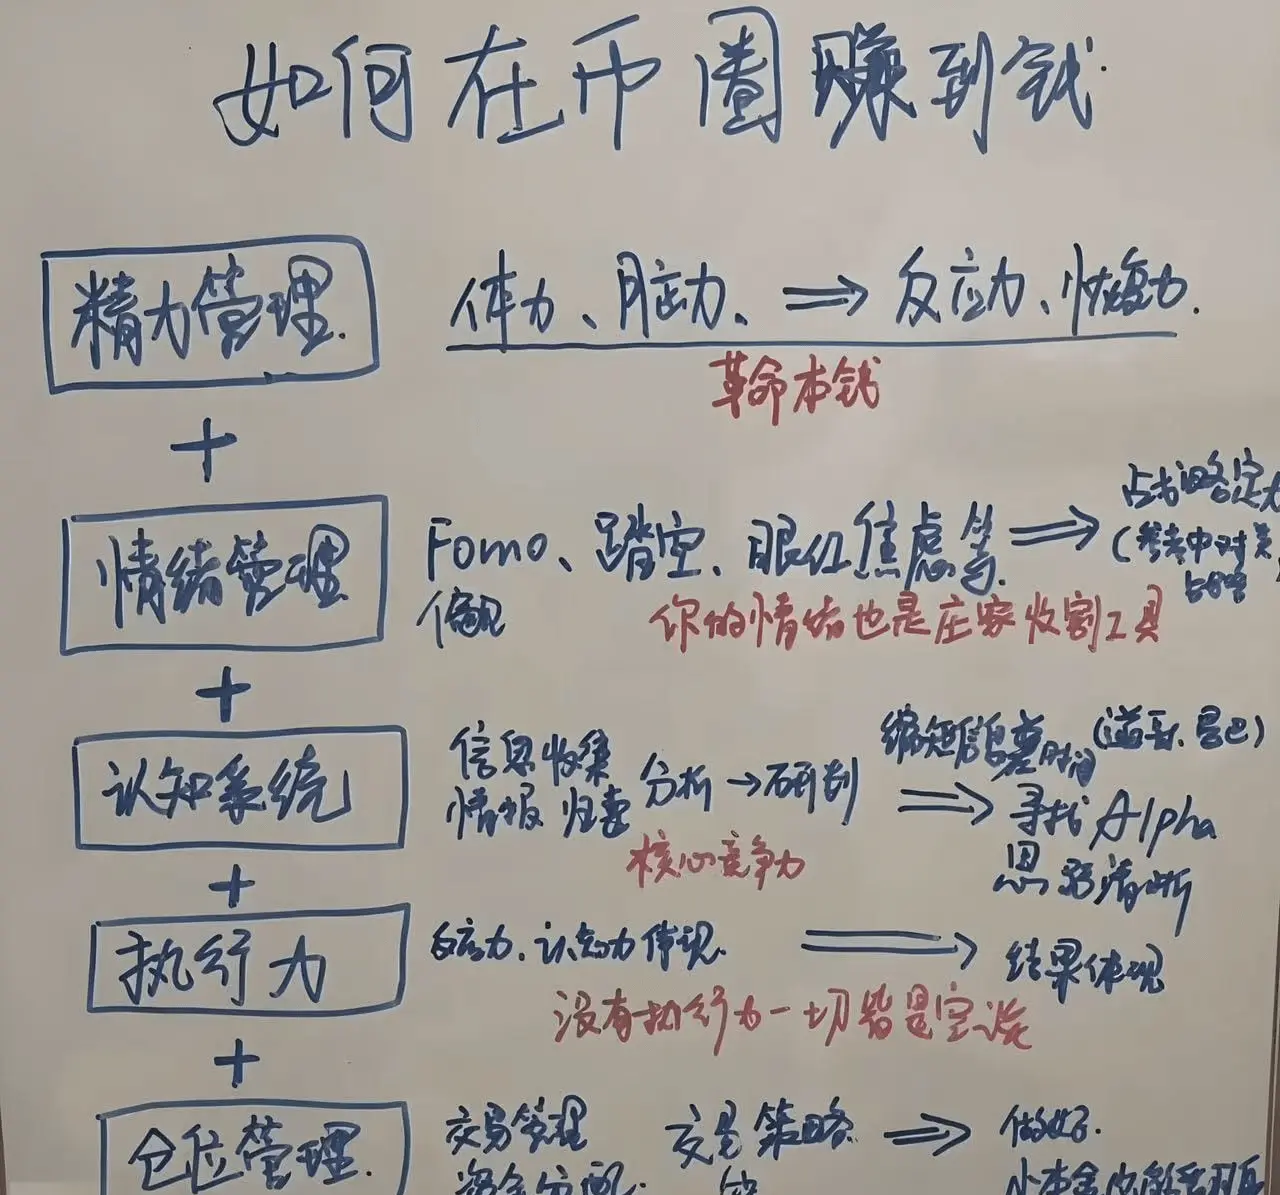 如何在币圈赚到钱
精力管理
体力、脑力、⇒反应力、恢复力
革命本钱
+
情绪管理
Fomo、踏空、眼红焦虑等⇒
占战略定力
(参考中对美
偏见
你的情绪也是庄家收割工具
+
认知系统
信息收集
情报归类
分析→研判
⇒
缩短信息差时间
寻找Alpha
思路清晰
核心竞争力
+
执行力
反应力、认知力体现⇒结果体现
没有执行力一切皆是空谈
+
仓位管理
交易管理
资金分配
交易策略⇒
做好
小本金